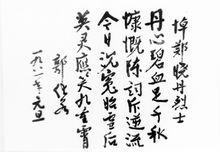 悼郑晓丹烈士
丹心碧血足千秋
慷慨陈词斥逆流
今日沉冤昭雪后
英灵应笑九重霄
郭化若
一九八一年元旦